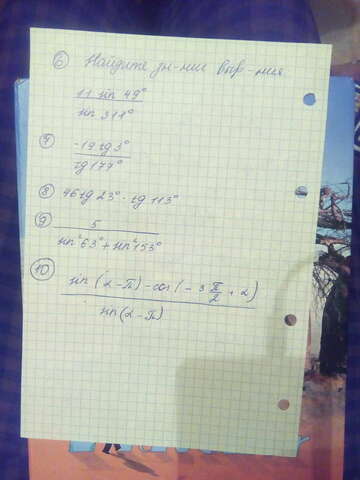 6 Найдите зн-ние выр-ния
11 sin 49°
sin 311°
7 -19 tg 3°
tg 177°
8 46 tg 23° · tg 113°
9 5
sin²63° + sin²153°
10 sin (α-π) - cos (-3 π/2 + α)
sin (α-π)